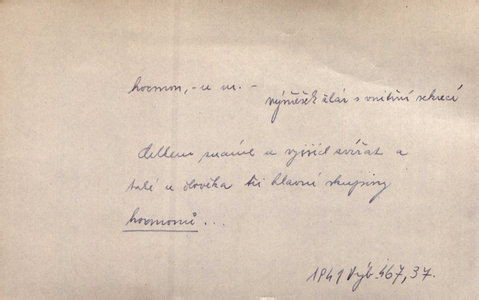 hormon, -u m. -
výměšek žláz s vnitřní sekrecí
Celkem známe u vyšších zvířat a
také u člověka tři hlavní skupiny
hormonů...
1941 Výb. 467,37.